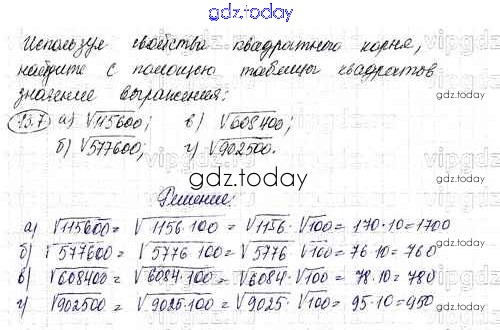 gdz.today
Используя свойства квадратного корня,
найдите с помощью таблицы квадратов
значение выражения:
15.7 а) √115600; в) √608400;
б) √577600; г) √902500.
gdz.today
Решение:
а) √115600 = √1156·100 = √1156·√100 = 170·10=1700
б) √577600 = √5776·100 = √5776·√100 = 76·10=760
в) √608400 = √6084·100 = √6084·√100 = 78·10=780
г) √902500 = √9025·100 = √9025·√100 = 95·10=950
gdz.today